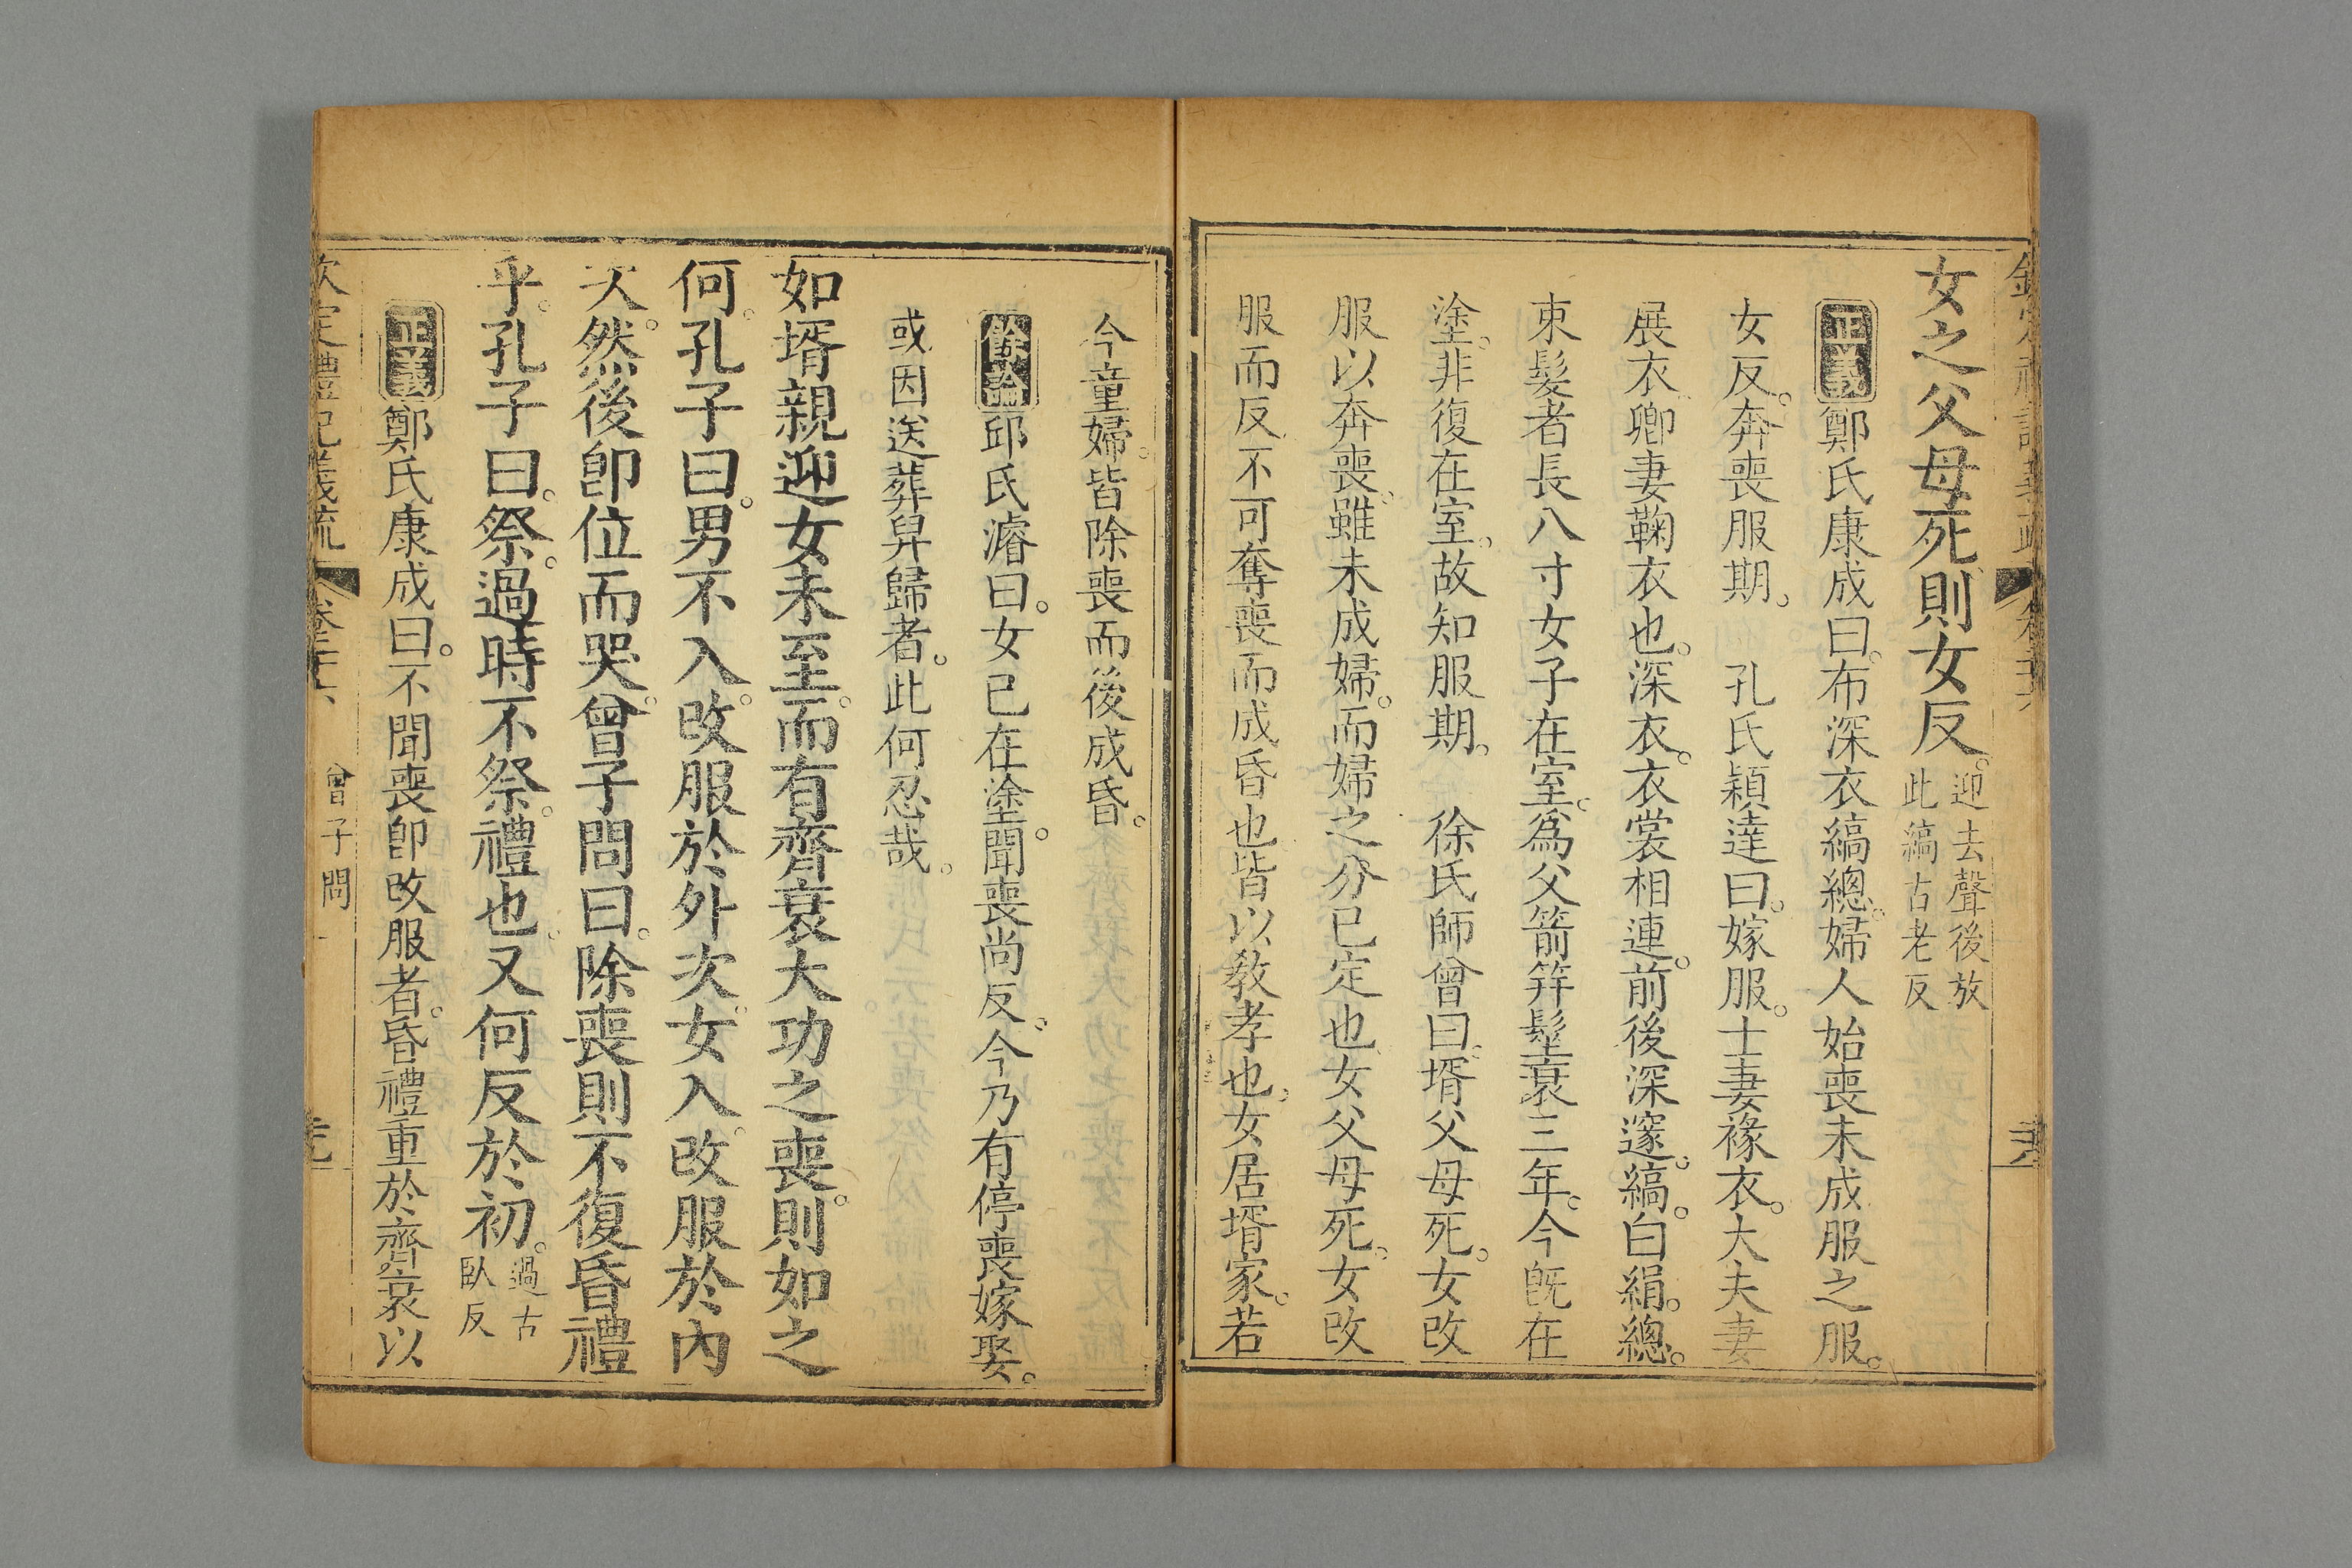 女之父母死則女反。迎去聲後放此縞古老反
正義鄭氏康成曰。布深衣縞總。婦人始喪未成服之服。
女反。奔喪服期。 孔氏穎達曰。嫁服。士妻褖衣。大夫妻
展衣。卿妻鞠衣也。深衣。衣裳相連。前後深邃。縞。白絹。總。
束髮者長八寸女子在室。爲父箭筓髽衰三年。今旣在
塗。非復在室。故知服期。 徐氏師曾曰。壻父母死。女改
服以奔喪。雖未成婦。而婦之分已定也。女父母死。女改
服而反不可奪喪而成昏也皆以敎孝也。女居壻家。若
今童婦。皆除喪而後成昏。
餘論邱氏濬曰。女已在塗。聞喪尚反。今乃有停喪嫁娶。
或因送葬舁歸者。此何忍哉。
如壻親迎女未至。而有齊衰大功之喪。則如之
何。孔子曰。男不入。改服於外次。女入。改服於內
次。然後卽位而哭。曾子問曰。除喪則不復昏禮
乎。孔子曰。祭。過時不祭。禮也。又何反於初。過古臥反
正義鄭氏康成曰。不聞喪卽改服者。昏禮重於齊衰以
欽定禮記義疏 卷二十六 曾子問